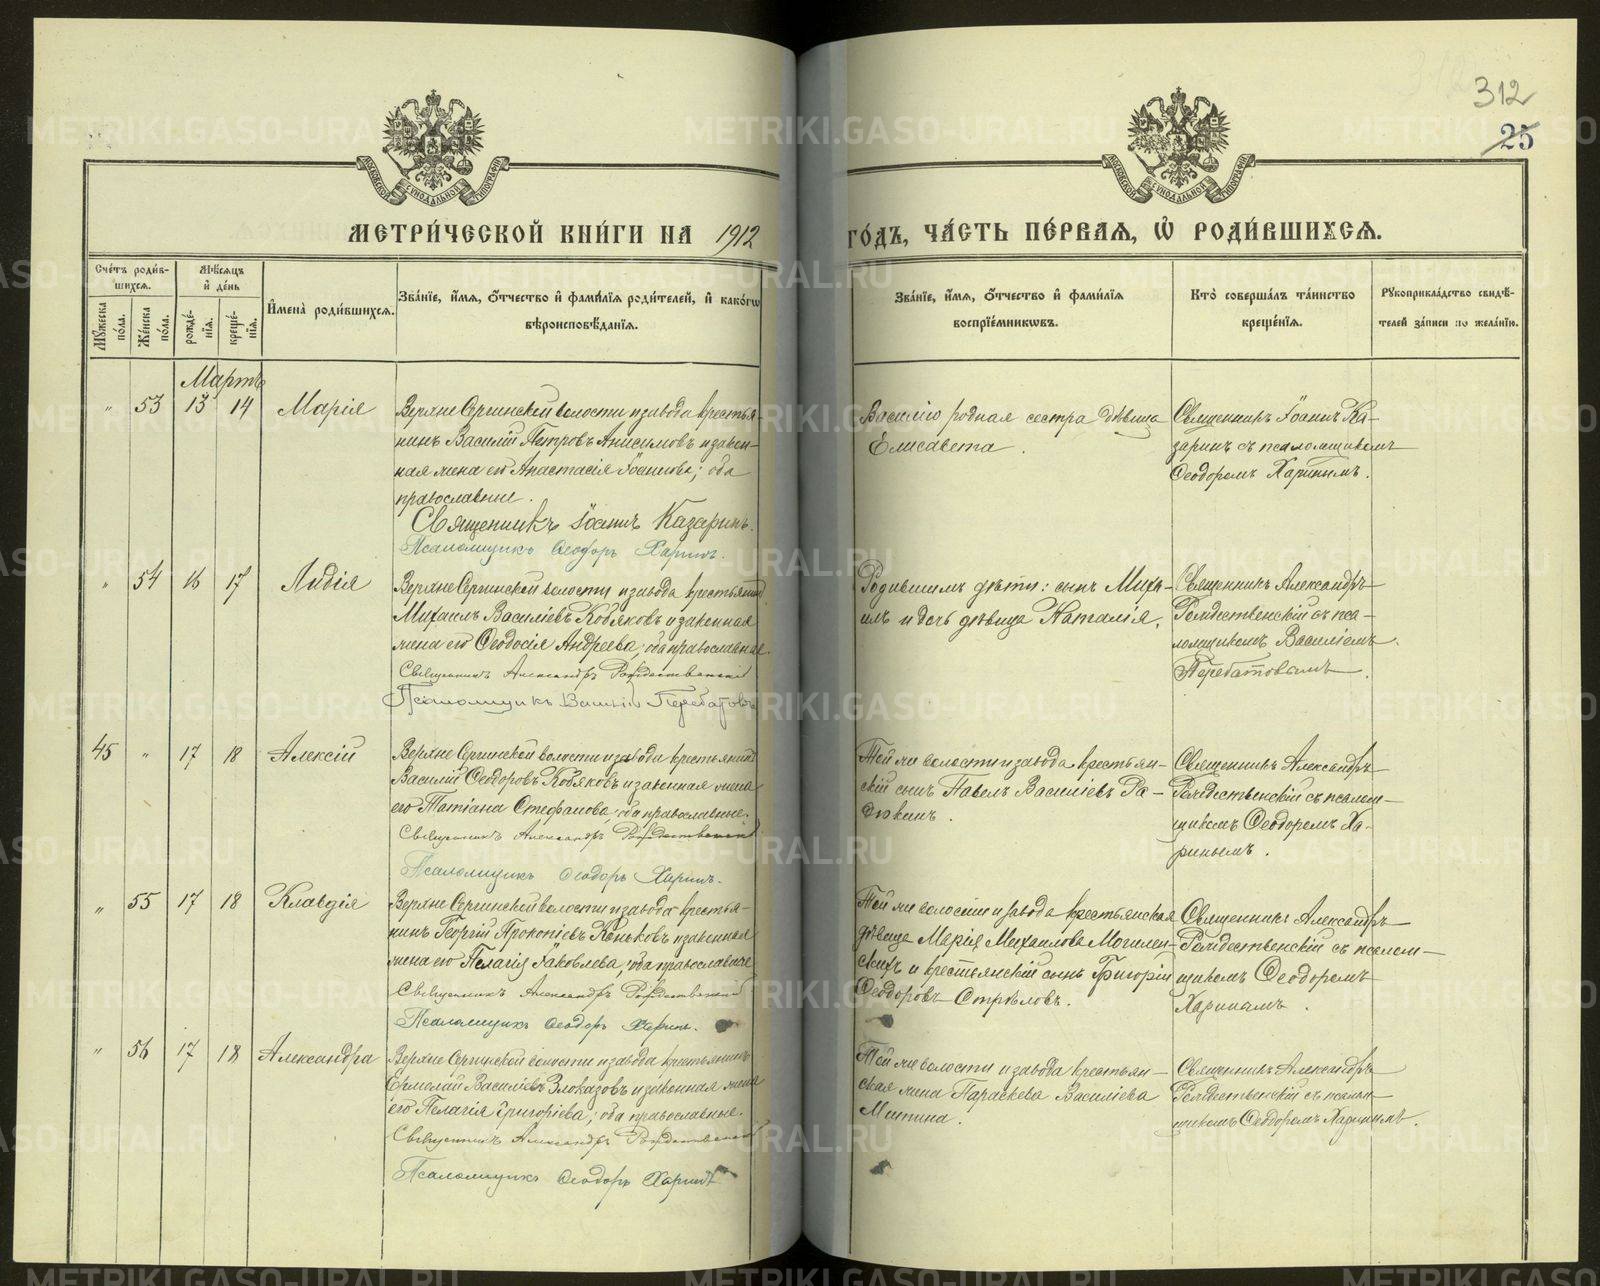 312
25
МОСКОВСКОЙ СУНОДАЛЬНОЙ ТИПОГРАФІИ
МОСКОВСКОЙ СУНОДАЛЬНОЙ ТИПОГРАФІИ
МЕТРИ́ЧЕСКОЙ КНИ́ГИ НА 1912
ГО́ДЪ, ЧА́СТЬ ПЕ́РВАѦ, Ѽ РОДИ́ВШИХСѦ.
Сче́тъ роди́в-
шихсѧ.
Мꙋ́жеска по́ла.
Же́нска по́ла.
Мѣ́сѧцъ
и҆ де́нь
рожде́-
нїѧ.
креще́-
нїѧ.
И҆мена̀ роди́вшихсѧ.
Зва́нїе, и҆́мѧ, ѻ҆́тчество и҆ фамѝлїѧ роди́телей, и҆ како́гѡ
вѣроисповѣ́данїѧ.
Зва́нїе, и҆́мѧ, ѻ҆́тчество и҆ фамѝлїѧ
воспрїе́мникѡвъ.
Кто̀ соверша́лъ та́инство
креще́нїѧ.
Рꙋкоприкла́дство свидѣ́-
телей за́писи по жела́нїю.
Мартъ
" 53 13 14 Марія
Верхне Сергинской волости и завода крестья-
нинъ Василій Петровъ Анисимовъ и закон-
ная жена его Анастасія Іоаннова; оба
православные.
Священникъ Іоаннъ Казаринъ.
Псаломщикъ Ѳеодоръ Харинъ.
Василію родная сестра дѣвица
Елисавета.
Священникъ Іоаннъ Ка-
заринъ съ псаломщикомъ
Ѳеодоромъ Харинымъ.
" 54 16 17 Лидія
Верхне Сергинской волости и завода крестьянинъ
Михаилъ Василіевъ Кобяковъ и законная
жена его Ѳеодосія Андреева, оба православные.
Священникъ Александръ Рождественскій
Псаломщикъ Василій Перебатовъ
Родившимъ дѣти: сынъ Миха-
илъ и дочь дѣвица Наталія.
Священникъ Александръ
Рождественскій съ пса-
ломщикомъ Василіемъ
Перебатовымъ.
45 " 17 18 Алексій
Верхне Сергинской волости и завода крестьянинъ
Василій Ѳеодоровъ Кобяковъ и законная жена
его Татіана Стефанова, оба православные.
Священникъ Александръ Рождественскій
Псаломщикъ Ѳеодоръ Харинъ.
Той же волости и завода крестьян-
скій сынъ Павелъ Василіевъ Ра-
Священникъ Александръ
Рождественскій съ псалом-
щикомъ Ѳеодоромъ Ха-
ринымъ.
" 55 17 18 Клавдія
Верхне Сергинской волости и завода крестья-
нинъ Георгій Прокопіевъ Коньковъ и законная
жена его Пелагія Іаковлева, оба православные
Священникъ Александръ Рождественскій
Псаломщикъ Ѳеодоръ Харинъ.
Той же волости и завода крестьянская
дѣвица Марія Михаилова Могилен-
скихъ и крестьянскій сынъ Григорій
Ѳеодоровъ Стрѣловъ.
Священникъ Александръ
Рождественскій съ псалом-
щикомъ Ѳеодоромъ
Харинымъ.
" 56 17 18 Александра
Верхне Сергинской волости и завода крестьянинъ
Ермолай Василіевъ Злоказовъ и законная жена
его Пелагія Григоріева; оба православные.
Священникъ Александръ Рождественскій
Псаломщикъ Ѳеодоръ Харинъ
Той же волости и завода крестьян-
ская жена Параскева Василіева
Митина.
Священникъ Александръ
Рождественскій съ псалом-
щикомъ Ѳеодоромъ Харинымъ.
METRIKI.GASO-URAL.RU